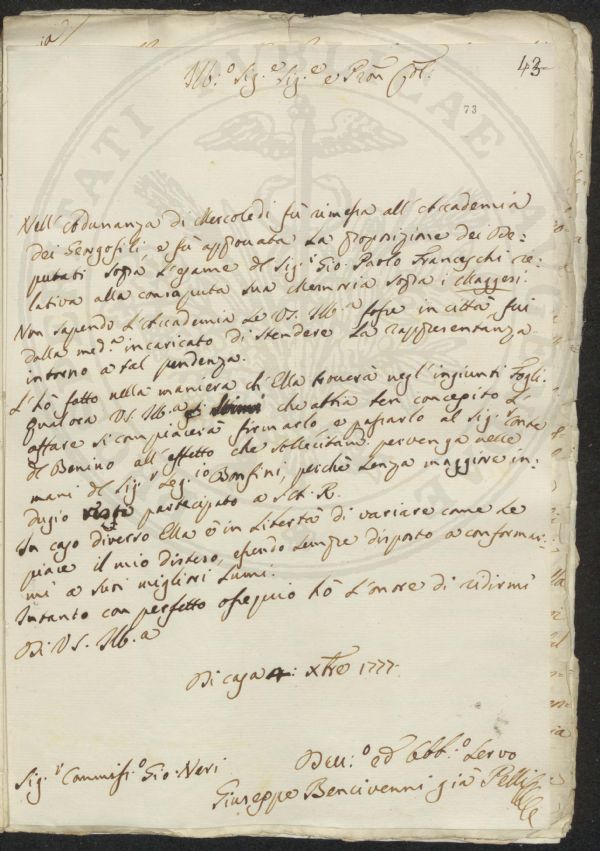 43
73
Ill:o Sig:e Sig:e e Pron Col:
Nell'Adunanza di Mercoledì fù rimessa all'Accademia
dei Georgofili, e fu approvata la proposizione dei De:
putati sopra l'esame del Sig:r Gio: Paolo Franceschi re:
lativa alla consaputa sua Memoria sopra i Maggesi.
Non sapendo l'Accademia se VS. Ill:a fosse in città fui
dalla med:a incaricato di stendere la rappresentanza
intorno a tal pendenza.
L'hò fatto nella maniera ch'Ella troverà negl'ingiunti fogli.
Qualora VS. Ill:a che abbia ben concepito l'
affare si compiacerà firmarlo e passarlo al Sig:r Conte
del Benino all'effetto che sollecitam: pervenga nelle
mani del Sig:r Seg:rio Bonfini, perchè senza maggiore in:
dugio partecipato a S.A.R.
In caso diverso Ella è in libertà di variare come le
piace il mio disteso, essendo sempre disposto a conformar:
mi a suoi migliori lumi.
Intanto con perfetto ossequio hò l'onore di ridirmi
Di VS. Ill:a
Di casa 4: Xbre 1777.
Sig:r Commiss:o Gio: Neri
Dev:o ed Obb:o Servo
Giuseppe Bencivenni già Pelli